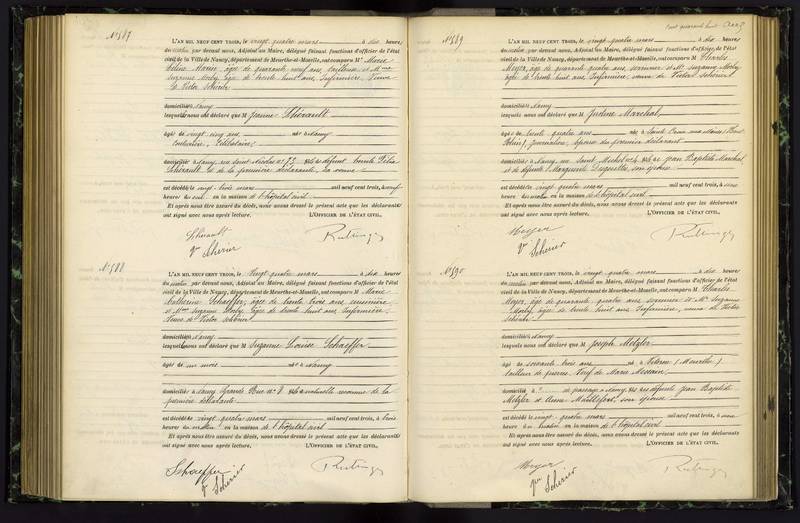 N° 587
L'AN MIL NEUF CENT TROIS, le vingt quatre mars à dix heures
du matin par devant nous, Adjoint au Maire, délégué faisant fonctions d'officier de l'état
civil de la Ville de Nancy, département de Meurthe-et-Moselle, ont comparu M Marie
âgée de quarante neuf ans, tailleuse et Mme
Suzanne Morly âgée de trente huit ans, Infirmière, Veuve
de Victor Schérier
domiciliées Nancy
lesquelles nous ont déclaré que M Jeanne Thérault
âgée de vingt cinq ans née à Nancy
Couturière, Célibataire
domiciliée à Nancy, rue Saint Nicolas n°
Thérault et de la première déclarante, sa veuve
est décédée le vingt trois mars mil neuf cent trois, à
heures du soir en la maison de l'hôpital civil
Et après nous être assuré du décès, nous avons dressé le présent acte que les déclarants
ont signé avec nous après lecture. L'OFFICIER DE L'ÉTAT CIVIL,
N° 588
L'AN MIL NEUF CENT TROIS, le Vingt quatre mars à dix heures
du matin par devant nous, Adjoint au Maire, délégué faisant fonctions d'officier de l'état
civil de la Ville de Nancy, département de Meurthe-et-Moselle, ont comparu M Marie
Catherine Schaeffer, âgée de trente trois ans, cuisinière
et Mme Suzanne Morly âgée de trente huit ans Infirmière,
Veuve de Victor Schérier
domiciliées Nancy
lesquelles nous ont déclaré que M Suzanne Louise Schaeffer
âgée de un mois née à Nancy
domiciliée à Nancy, Grande Rue n° 8 fille naturelle reconnue de la
première déclarante
est décédée le vingt quatre mars mil neuf cent trois, à trois
heures du matin en la maison de l'hôpital civil
Et après nous être assuré du décès, nous avons dressé le présent acte que les déclarants
ont signé avec nous après lecture. L'OFFICIER DE L'ÉTAT CIVIL,
Schaeffer
Vve Schérier
N° 589
L'AN MIL NEUF CENT TROIS, le vingt quatre mars à dix heures
du matin par devant nous, Adjoint au Maire, délégué faisant fonctions d'officier de l'état
civil de la Ville de Nancy, département de Meurthe-et-Moselle, ont comparu M Charles
Meyer, âgé de quarante quatre ans, serrurier et Me Suzanne Morly
âgée de trente huit ans, Infirmière, veuve de Victor Schérier
domiciliés Nancy
lesquels nous ont déclaré que M Justine Marchal
âgée de trente quatre ans née à Sainte Croix aux Mines
journalière, épouse du premier déclarant
domiciliée à Nancy, rue Saint Michel n° 4 fille de Jean Baptiste Marchal
et de défunte Marguerite son épouse
est décédée le vingt quatre mars mil neuf cent trois, à
heures du matin en la maison de l'hôpital civil
Et après nous être assuré du décès, nous avons dressé le présent acte que les déclarants
ont signé avec nous après lecture. L'OFFICIER DE L'ÉTAT CIVIL,
Meyer
Vve Schérier
N° 590
L'AN MIL NEUF CENT TROIS, le vingt quatre mars à dix heures
du matin par devant nous, Adjoint au Maire, délégué faisant fonctions d'officier de l'état
civil de la Ville de Nancy, département de Meurthe-et-Moselle, ont comparu M Charles
Meyer, âgé de quarante quatre ans serrurier et Me Suzanne
Morly, âgée de trente huit ans, Infirmière, veuve de Victor
Schérier
domiciliés Nancy
lesquels nous ont déclaré que M Joseph Metzler
âgé de soixante trois ans né à (Meurthe)
tailleur de pierres, Veuf de Marie
domicilié à de passage à Nancy, fils des défunts Jean Baptiste
Metzler et Anna son épouse
est décédé le vingt quatre mars mil neuf cent trois, à
heures du matin en la maison de l'hôpital civil
Et après nous être assuré du décès, nous avons dressé le présent acte que les déclarants
ont signé avec nous après lecture. L'OFFICIER DE L'ÉTAT CIVIL,
Meyer
Vve Schérier